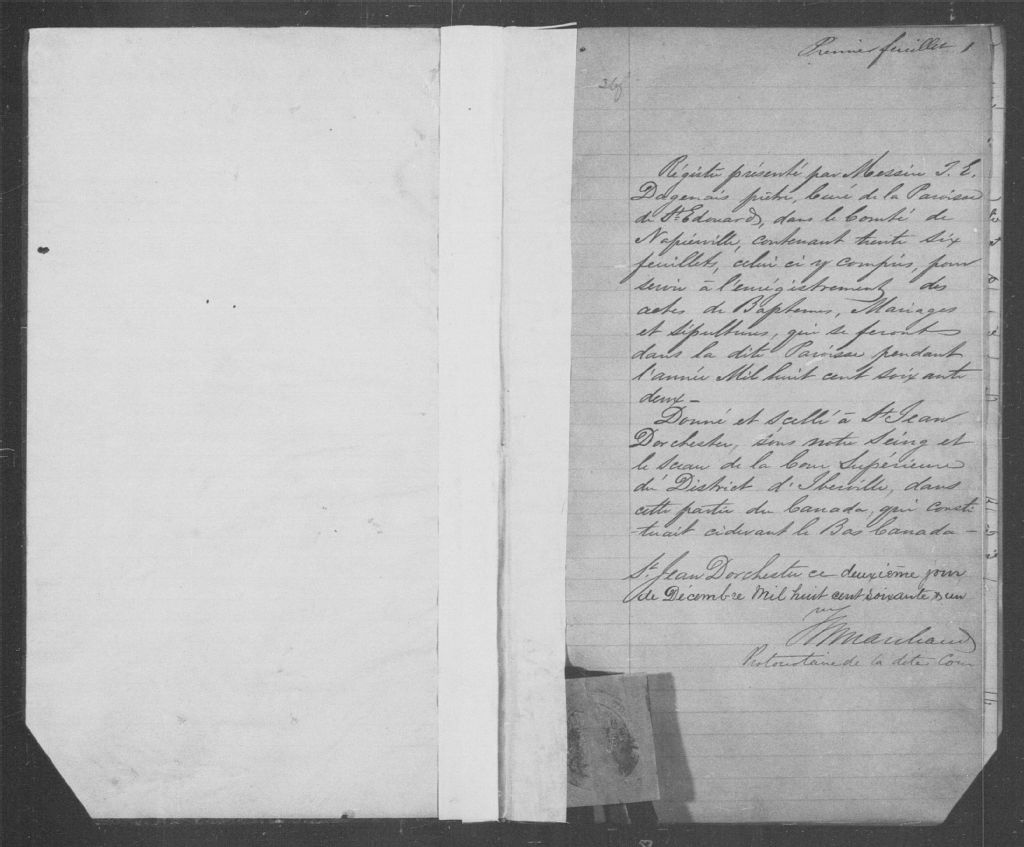 Premier feuillet 1
36f
Régistre présenté par Messire J. E.
Dagenais prêtre, Curé de la Paroisse
de St Edouard, dans le Comté de
Napierville, contenant trente six
feuillets, celui ci y compris, pour
servir à l'enrégistrement des
actes de Baptemes, Mariages
et sépultures, qui se feront
dans la dite Paroisse pendant
l'année Mil huit cent soixante
deux –
Donné et scellé à St Jean
Dorchester, sous notre Seing et
le sceau de la Cour Supérieure
du District d'Iberville, dans
cette partie du Canada, qui consti
-tuait cidevant le Bas Canada –
St Jean Dorchester ce deuxième jour
de Décembre Mil huit cent soixante & un
Marchand
Protonotaire de la dite Cour